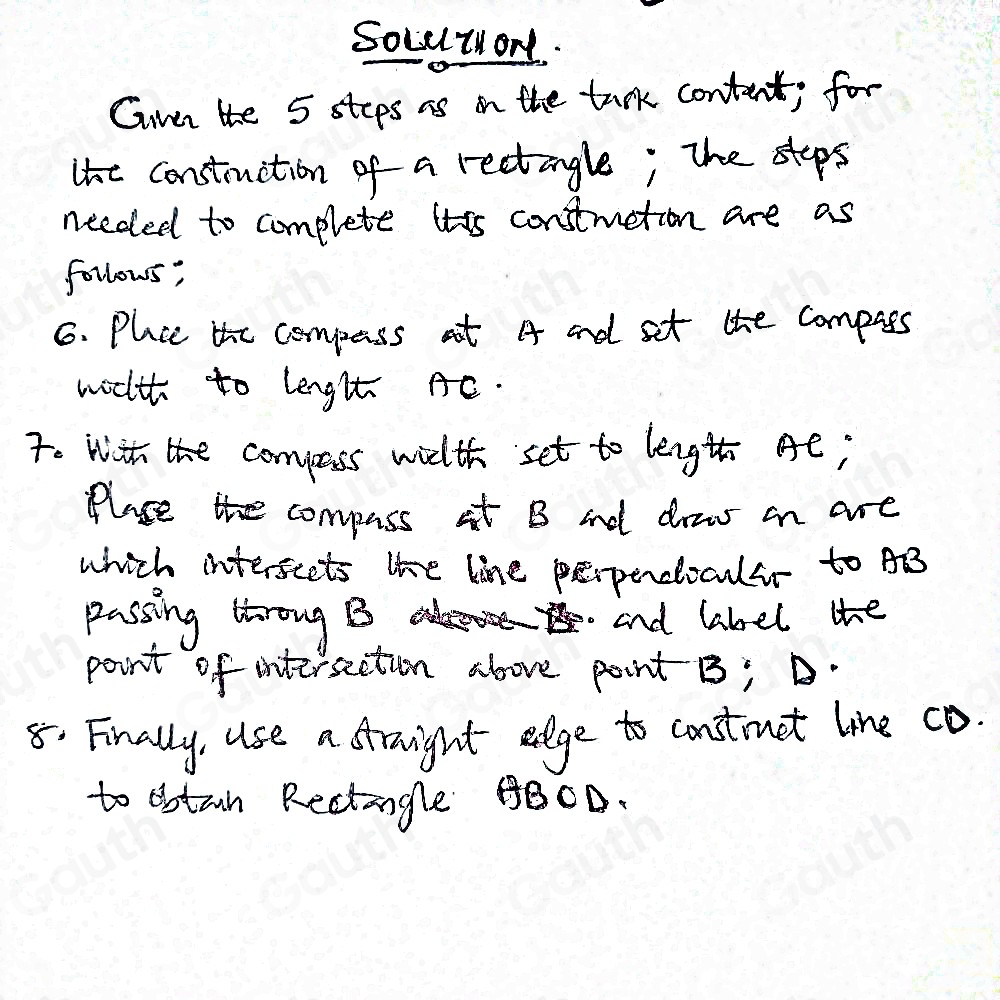 SOLUTION.
Given the 5 steps as in the task content; for
the construction of a rectangle; the steps
needed to complete this construction are as
follows;
6. Place the compass at A and set the compass
width to length AC.
7. With the compass width set to length AC;
Place the compass at B and draw an arc
which intersects the line perpendicular to AB
passing throug B above B. and label the
point of intersection above point B; D.
8. Finally, use a straight edge to construct line CD.
to obtain Rectangle ABCD.
Gauth